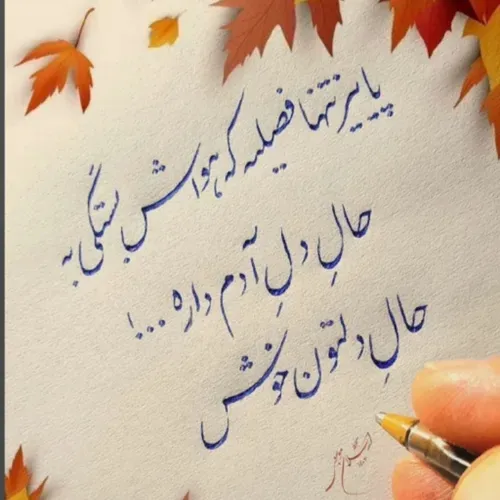 پاییز تنها فصلیه که هواش بستگی به
حالِ دلِ آدم داره...!
حالِ دلتون خوش